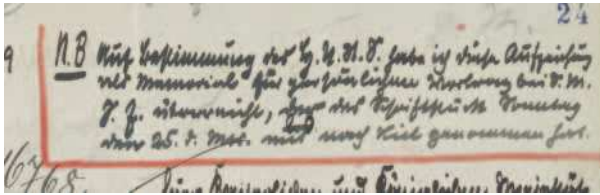 24
9 N.B Auf Bestimmung des H. U. St. S. habe ich diese Aufzeichnung
als Memorial für persönlichen Vortrag bei S. M.
überreicht, der das Schriftstück Sonntag
den 25. d. Mts. mit nach Kiel genommen hat.
und Königlichen